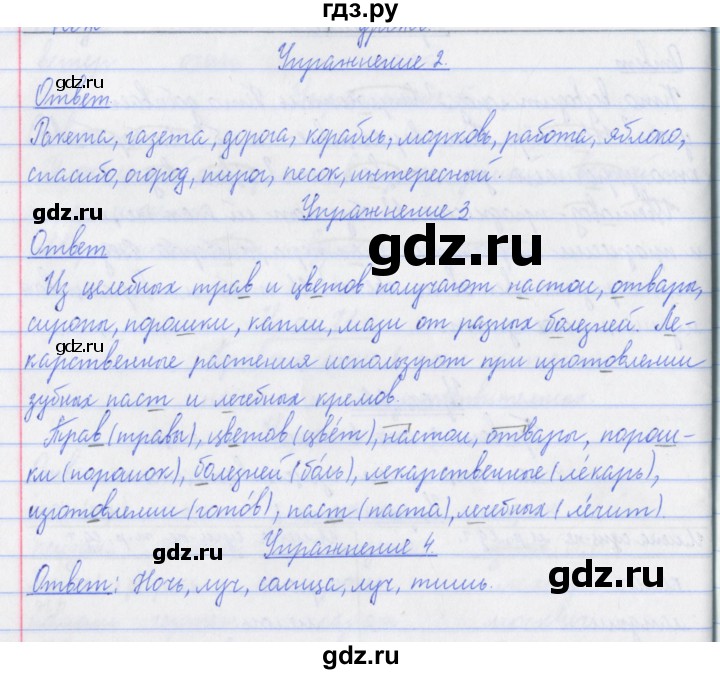 гдз.ру
Упражнение 2.
Ответ
gdz.ru
Ответ
Ракета, газета, дорога, корабль, морковь, работа, яблоко,
gdz.ru
спасибо, огород, пирог, песок, интересный.
gdz.ru
Упражнение 3
Ответ
gdz.ru
Из целебных трав и цветов получают настои, отвары,
сиропы, порошки, капли, мази от разных болезней. Ле-
gdz.ru
карственные растения используют при изготовлении
зубных паст и лечебных кремов.
Трав (травы), цветов (цвет), настои, отвары, порош-
gdz.ru
ки (порошок), болезней (боль), лекарственные (лекарь),
изготовлении (готов), паст (паста), лечебных (лечит).
Упражнение 4.
gdz.ru
Ответ: Ночь, луч, солнца, луч, тишь.
gdz.ru
gdz.ru